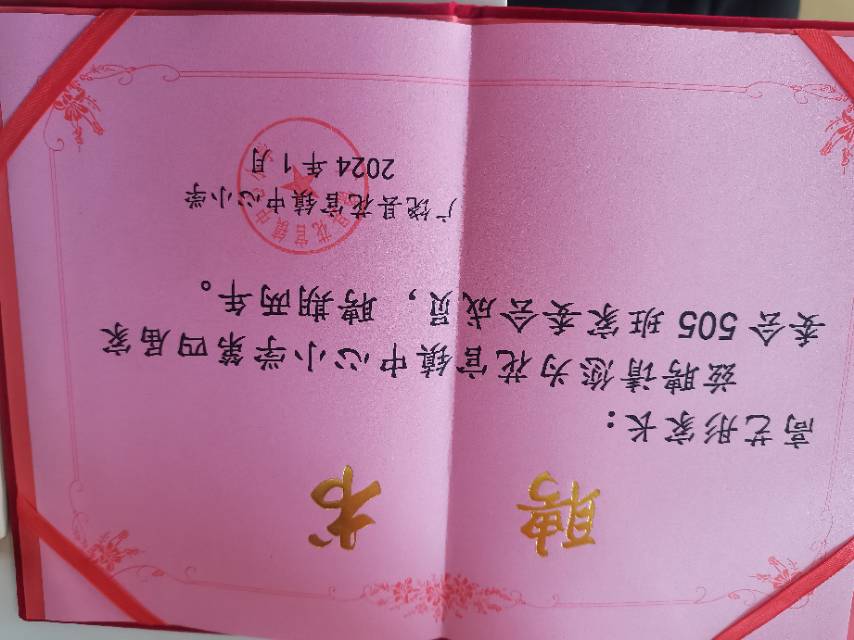 聘书
高艺彤家长：
兹聘请您为花官镇中心小学第四届家
委会505班家委会成员，聘期两年。
广饶县花官镇中心小学
2024年1月